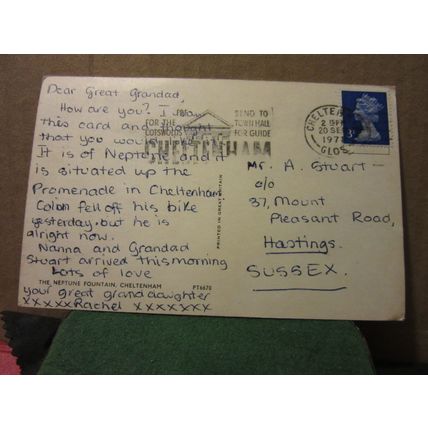 Dear Great Grandad,
How are you? I saw
this card and thought
that you would
It is of Neptune and it
is situated up the
Promenade in Cheltenham
Colan fell off his bike
yesterday. but he is
alright now.
Nanna and Grandad
Stuart arrived this morning
Lots of love
THE NEPTUNE FOUNTAIN, CHELTENHAM PT6670
your great grand daughter
xxxxx Rachel xxxxxxx
PRINTED IN GREAT BRITAIN
FOR THE
COTSWOLDS
SEND TO
TOWN HALL
FOR GUIDE
CHELTENHAM
CHELTEN
20 SE
197
GLOS
Mr. A. Stuart –
c/o
37, Mount
Pleasant Road,
Hastings.
SUSSEX.